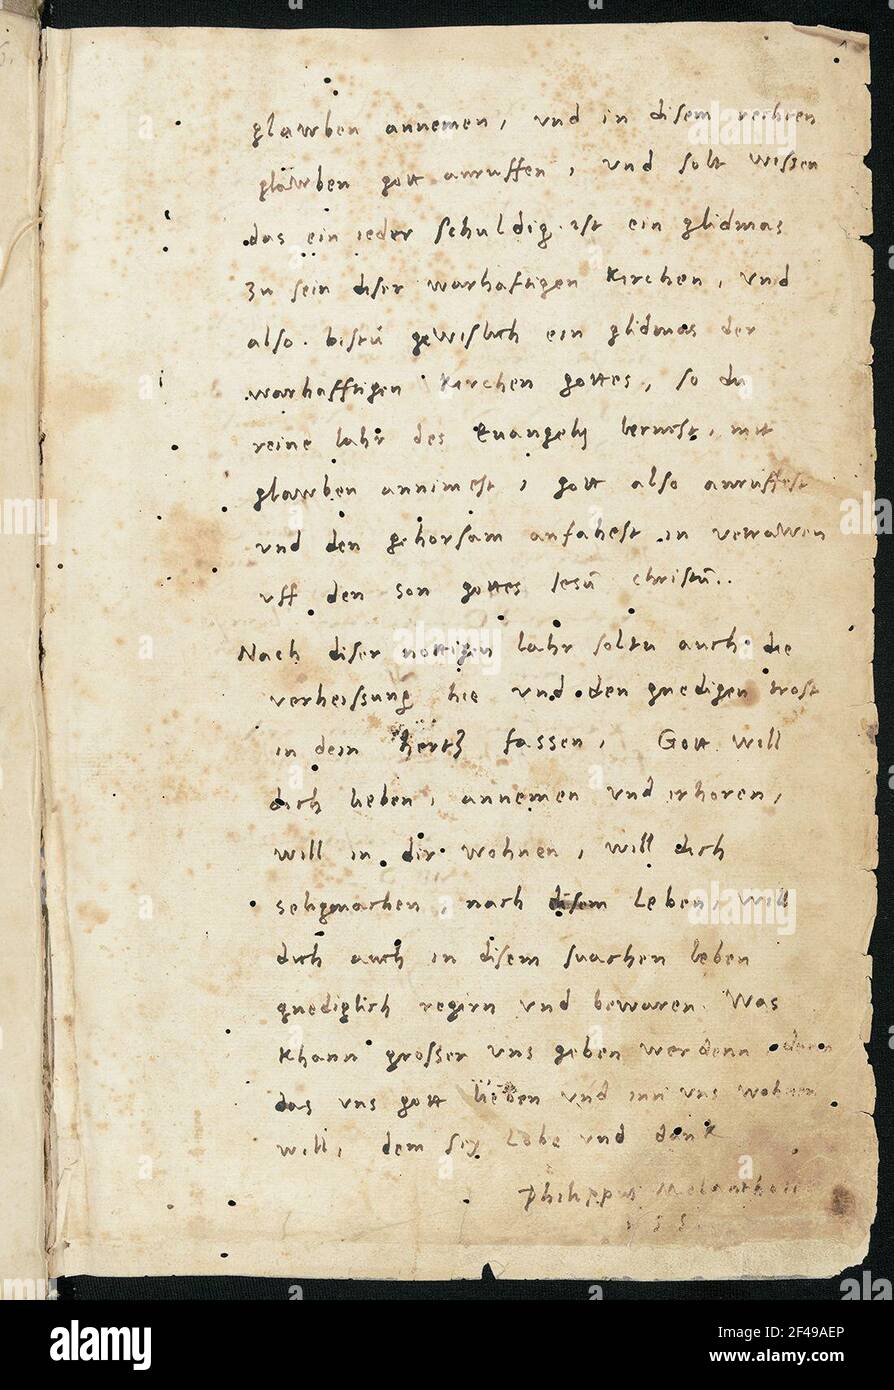 glawben annemen, vnd in disem rechten
glawben gott anruffen, vnd solt wissen
das ein ieder schuldig ist ein glidmas
zu sein diser warhafftigen kirchen, vnd
also bistu gewislich ein glidmas der
warhafftigen kirchen gottes, so du
reine lahr des Euangelij lernest, mit
glawben annimest, gott also anruffest
vnd den gehorsam anfahest in vertrawen
vff den son gottes Iesū christū..
Nach diser nottigen lahr soltu auch die
verheissung hie vnd den gnedigen trost
in dein hertz fassen, Gott will
dich lieben, annemen vnd erhoren,
will in dir wohnen, will dich
seligmachen, nach disem Leben, will
dich auch in disem swachen leben
gnediglich regirn vnd bewaren. Was
khann grosser vns geben werdenn denn
das vns gott lieben vnd inn vns wohnen
will, dem sey Lobe vnd dank
Philippus Melanthon
alamy
Image ID: 2F49AEP
www.alamy.com